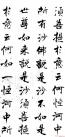 須菩提於意云何如恒河中所
有沙佛說是沙不如是
世尊如來說是沙須
菩提於意云何如